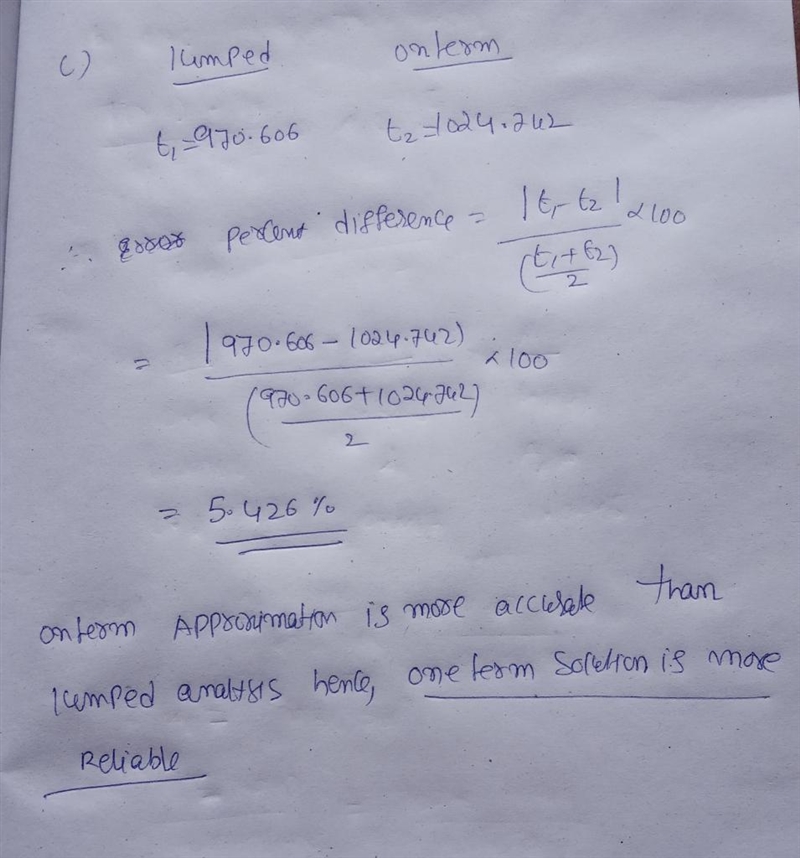 c) lumped onterm
t₁=970.606 t₂=1024.742
∴ percent difference = |t₁-t₂| / ((t₁+t₂)/2) ×100
= |970.606-1024.742) / ((970.606+1024.742)/2) ×100
= 5.426 %
onterm Approximation is more accurate than
lumped analysis hence, one term solution is more
Reliable